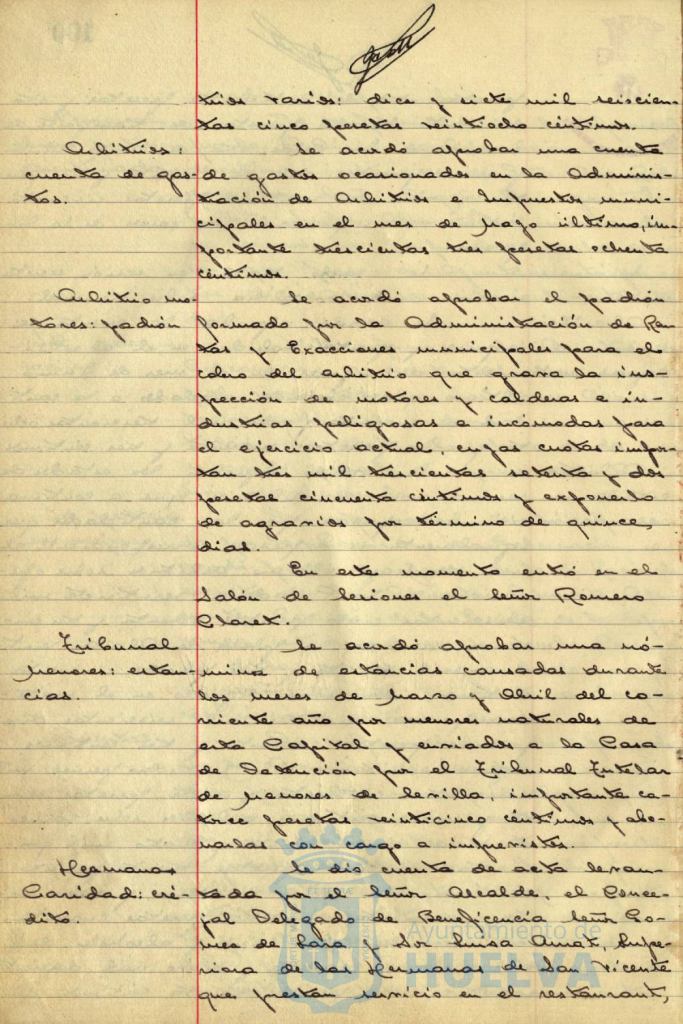 trios varios: diez y siete mil seiscien-
tas cinco pesetas veintiocho céntimos.
Arbitrios:
cuenta de gas-
tos.
Se acordó aprobar una cuenta
de gastos ocasionados en la Adminis-
tración de Arbitrios e Impuestos muni-
cipales en el mes de Mayo último, im-
portante trescientas tres pesetas ochenta
céntimos.
Arbitrio mo-
tores: padrón
Se acordó aprobar el padrón
formado por la Administración de Ren-
tas y Exacciones municipales para el
cobro del arbitrio que grava la ins-
pección de motores y calderas e in-
dustrias peligrosas e incómodas para
el ejercicio actual, cuyas cuotas impor-
tan tres mil trescientas setenta y dos
pesetas cincuenta céntimos y exponerlo
de agravios por término de quince
días.
En este momento entró en el
Salón de Sesiones el Señor Romero
Claret.
Tribunal
Menores: estan-
cias.
Se acordó aprobar una nó-
mina de estancias causadas durante
los meses de Marzo y Abril del co-
rriente año por menores naturales de
esta Capital y enviados a la Casa
de Detención por el Tribunal Tutelar
de Menores de Sevilla, importante ca-
torce pesetas veinticinco céntimos y abo-
narlas con cargo a imprevistos.
Hermanas
Caridad: cré-
dito.
Se dió cuenta de acta levan-
tada por el Señor Alcalde, el Conce-
jal Delegado de Beneficencia Señor Gó-
mez de Lara y Sor Luisa Amat, Supe-
riora de las Hermanas de San Vicente
que prestan servicio en el restaurant,
Ayuntamiento de
HUELVA